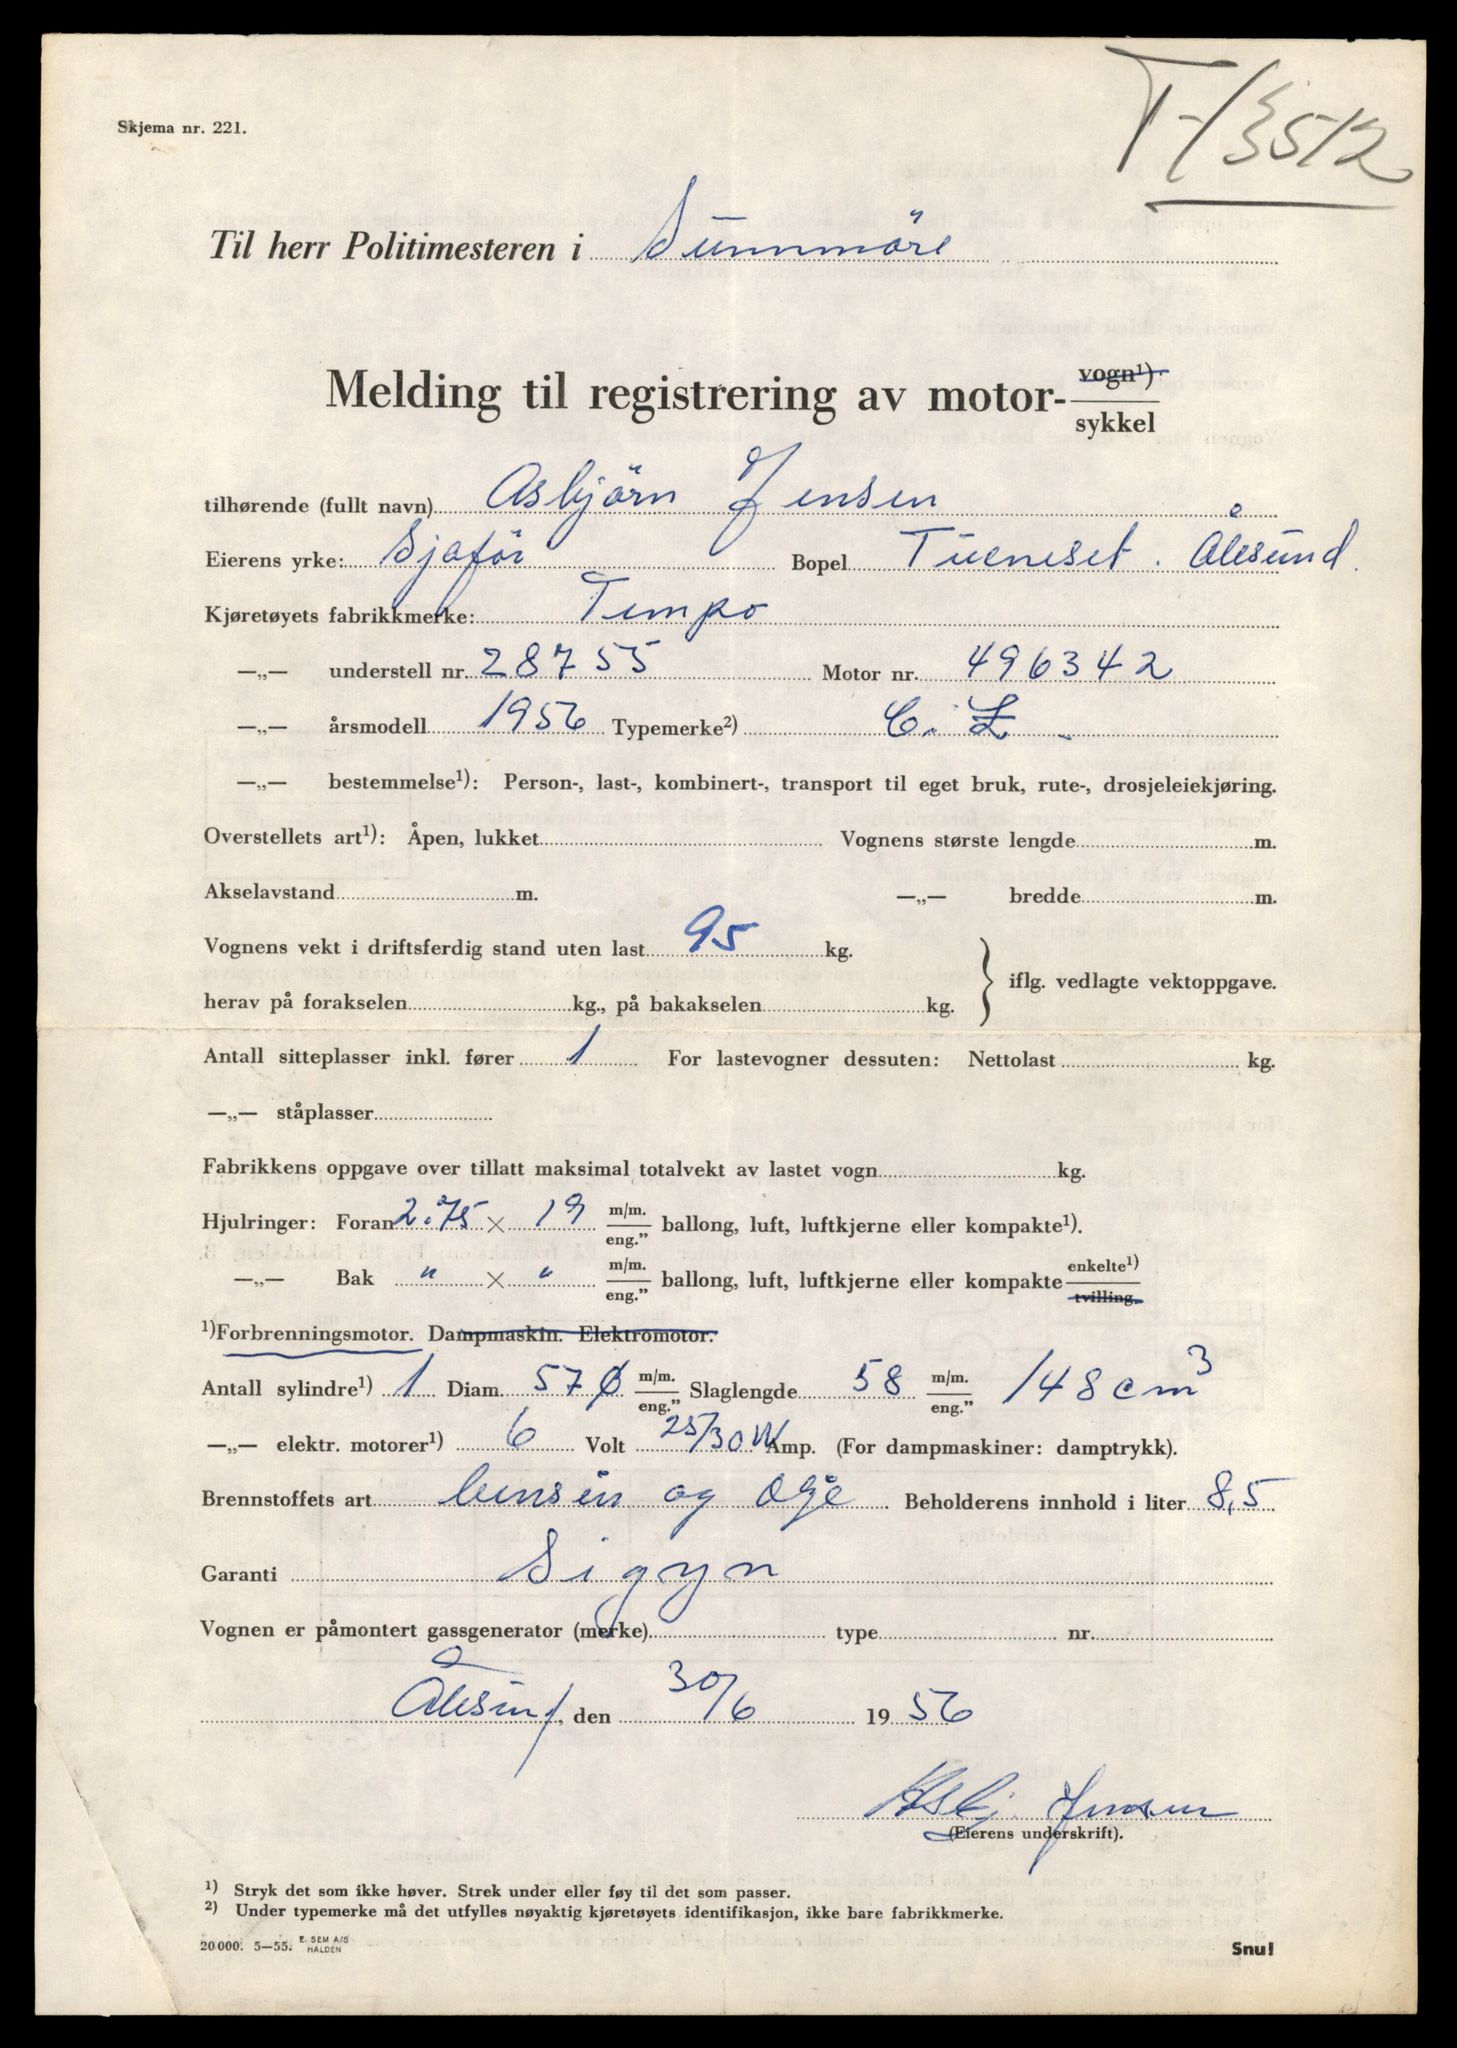 T-13512
Skjema nr. 221.
Til herr Politimesteren i Sunnmöre
Melding til registrering av motor- vogn¹) / sykkel
tilhørende (fullt navn) Asbjörn Jensen
Eierens yrke: Sjåför Bopel Tueneset. Ålesund.
Kjøretøyets fabrikkmerke: Tempo
—„— understell nr. 28755 Motor nr. 496342
—„— årsmodell 1956 Typemerke²)
—„— bestemmelse¹): Person-, last-, kombinert-, transport til eget bruk, rute-, drosjeleiekjøring.
Overstellets art¹): Åpen, lukket Vognens største lengde m.
Akselavstand m. —„— bredde m.
Vognens vekt i driftsferdig stand uten last 95 kg.
iflg. vedlagte vektoppgave.
herav på forakselen kg., på bakakselen kg.
Antall sitteplasser inkl. fører 1 For lastevogner dessuten: Nettolast kg.
—„— ståplasser
Fabrikkens oppgave over tillatt maksimal totalvekt av lastet vogn kg.
Hjulringer: Foran 2.75 × 19 m/m. / eng.” ballong, luft, luftkjerne eller kompakte¹).
—„— Bak " × " m/m. / eng.” ballong, luft, luftkjerne eller kompakte enkelte¹) / tvilling.
¹)Forbrenningsmotor. Dampmaskin. Elektromotor.
Antall sylindre¹) 1 Diam. 57 Ø m/m. / eng.” Slaglengde 58 m/m. / eng.” 148 cm³
—„— elektr. motorer¹) 6 Volt 25/30 W Amp. (For dampmaskiner: damptrykk).
Brennstoffets art bensin og olje Beholderens innhold i liter 8,5
Garanti Sigyn
Vognen er påmontert gassgenerator (merke) type nr.
Ålesund, den 30/6 1956
Asbj. Jensen
(Eierens underskrift).
¹) Stryk det som ikke høver. Strek under eller føy til det som passer.
²) Under typemerke må det utfylles nøyaktig kjøretøyets identifikasjon, ikke bare fabrikkmerke.
20 000. 5—55. E. SEM A/S HALDEN Snu!